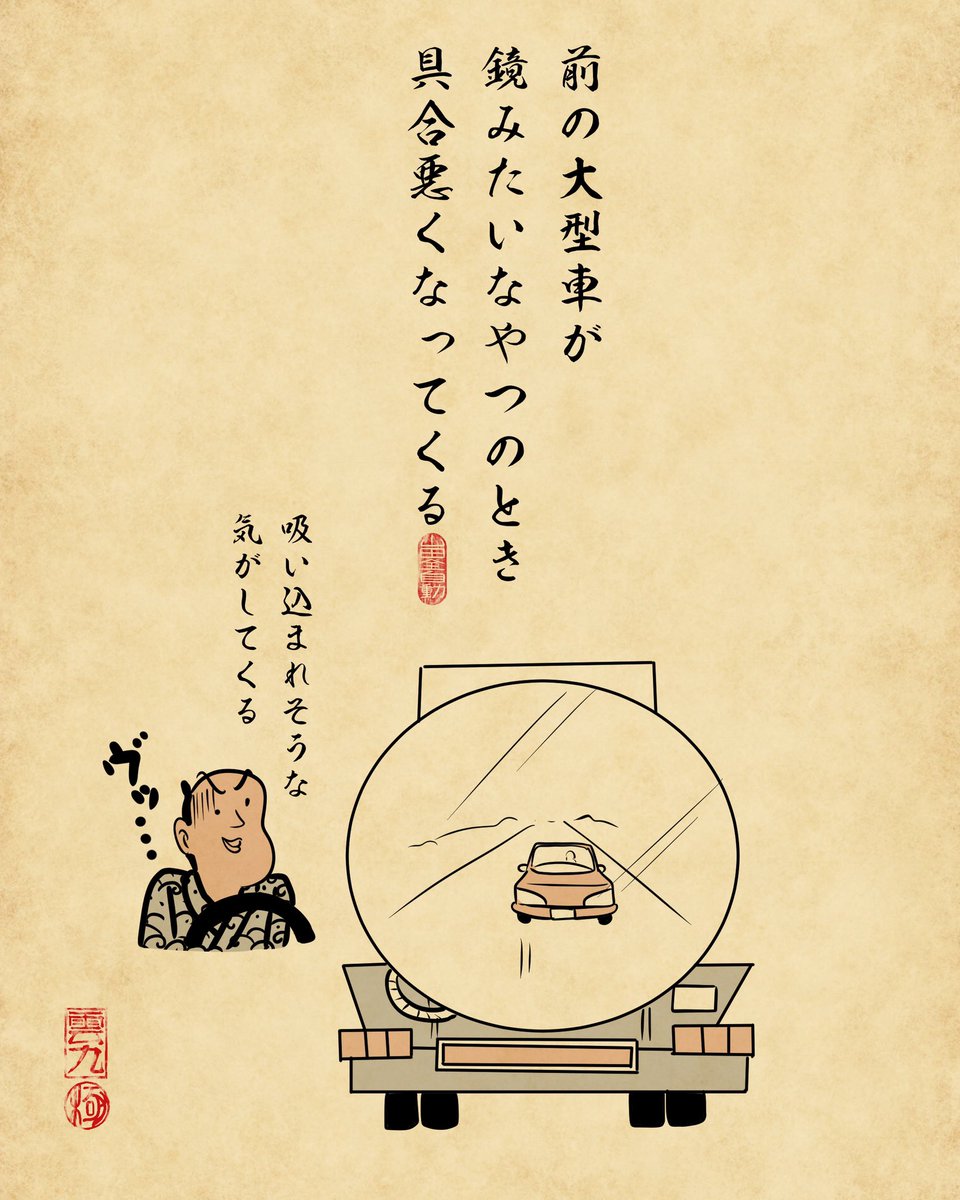 前の大型車が
鏡みたいなやつのとき
具合悪くなってくる
吸い込まれそうな
気がしてくる
ヴッ…